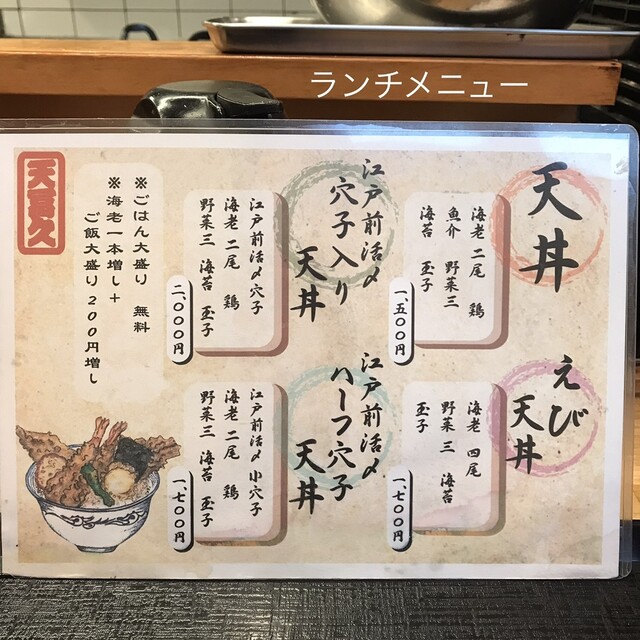 ランチメニュー
天丼
海老 二尾 鶏
魚介 野菜三
海苔 玉子
一、五〇〇円
えび
天丼
海老 四尾
野菜三 海苔
玉子
一、七〇〇円
江戸前活〆
穴子入り
天丼
江戸前活〆穴子
海老 二尾 鶏
野菜三 海苔 玉子
二、〇〇〇円
江戸前活〆
ハーフ穴子
天丼
江戸前活〆 小穴子
海老 二尾 鶏
野菜三 海苔 玉子
一、七〇〇円
※ごはん大盛り 無料
※海老一本増し+
ご飯大盛り200円増し
天喜久